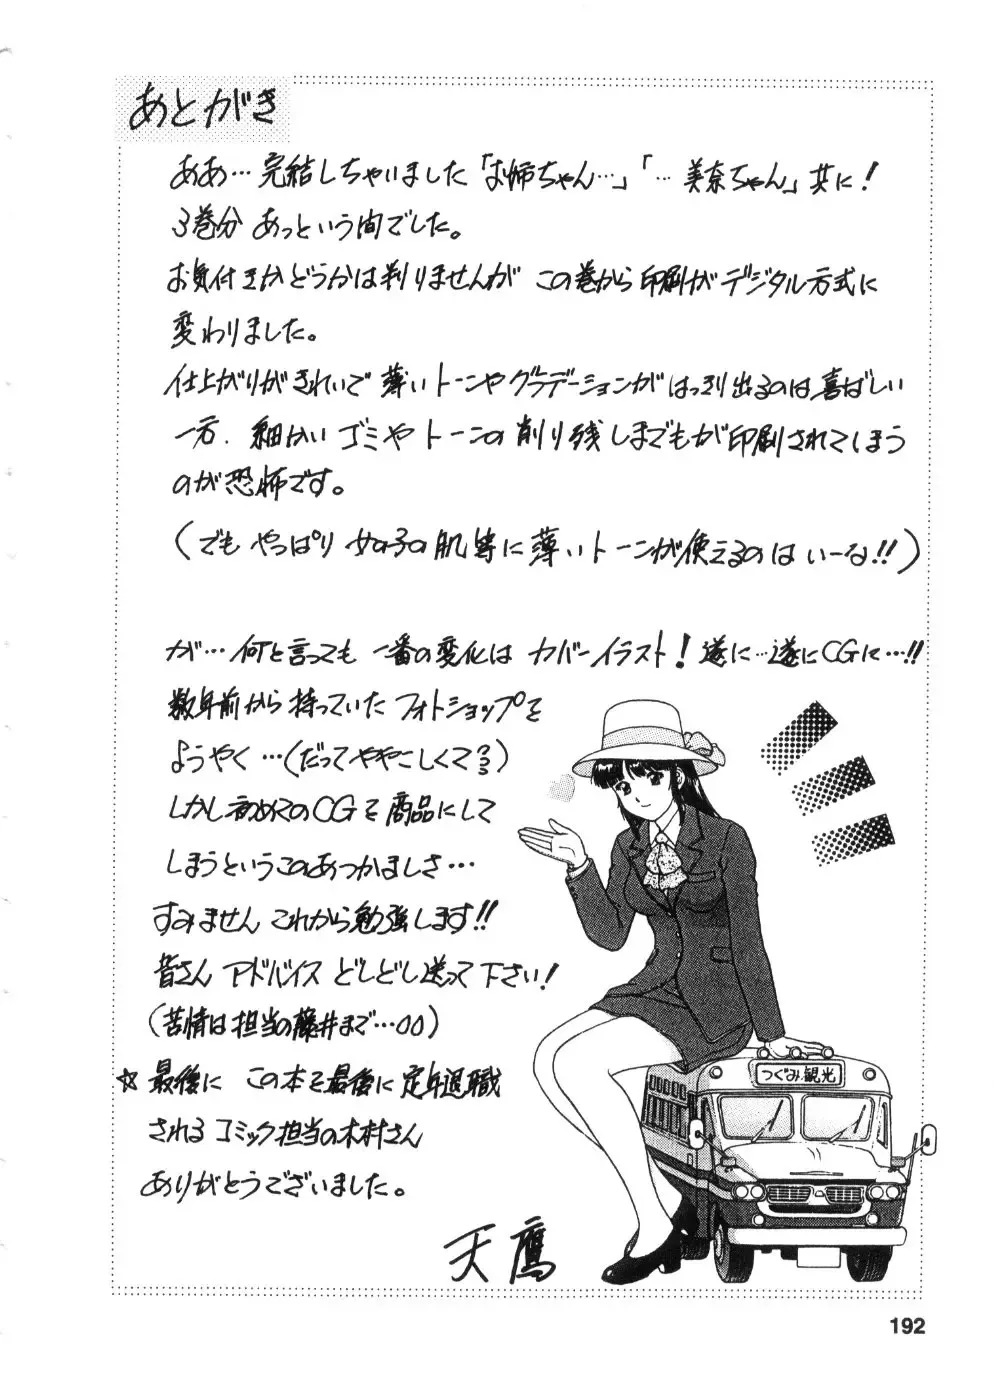 あとがき
ああ…完結しちゃいました「お姉ちゃん…」「…美奈ちゃん」共に！
3巻分 あっという間でした。
お気付きかどうかは判りませんが この巻から印刷がデジタル方式に
変わりました。
仕上がりがきれいで 薄いトーンやグラデーションが はっきり出るのは喜ばしい
一方、細かい ゴミや トーンの削り残しまでもが印刷されてしまう
のが恐怖です。
（でも やっぱり 女の子の肌等に薄いトーンが使えるのは いーな!!）
が…何と言っても 一番の変化は カバーイラスト！遂に…遂にCGに…!!
数年前から 持っていた フォトショップを
ようやく…（だってややこしくて??）
しかし初めてのCGを商品にして
しまうというこのあつかましさ…
すみません これから勉強します!!
皆さん アドバイス どしどし送って下さい！
（苦情は担当の藤井まで…）
☆最後に この本を最後に定年退職
されるコミック担当の木村さん
ありがとうございました。
天鷹
つぐみ観光
192